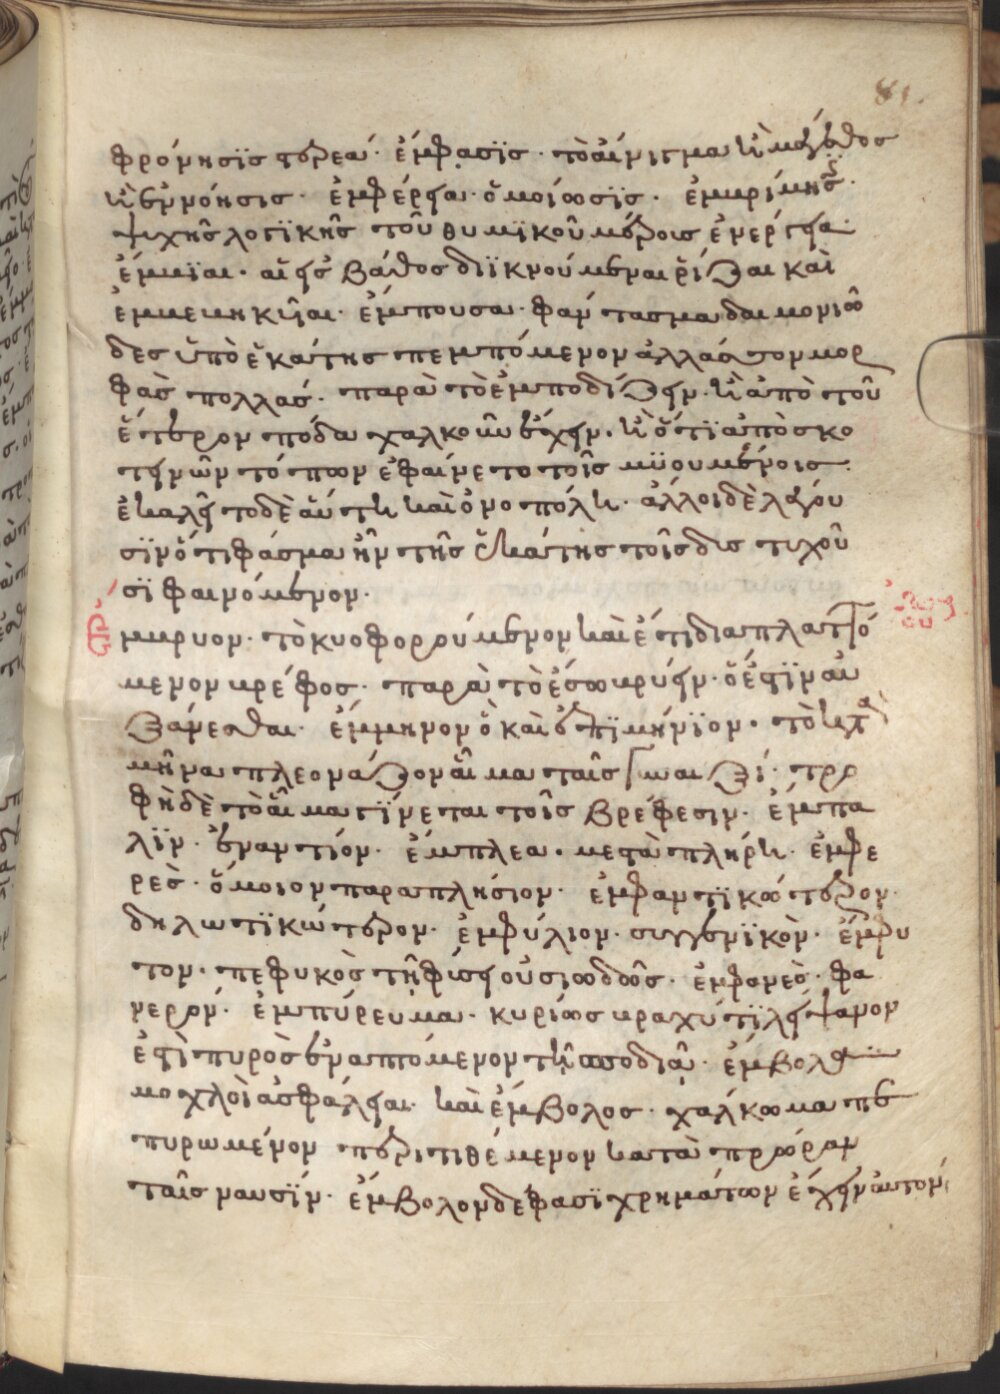 81.
φρόνησϊς στερεά· ἔμφασϊς· τὸ αἴνιγμα καὶ μέγεθος
καὶ ἐννόησις· ἐμφέρεια· ὁμοίωσϊς·
ψυχῆς λογϊκῆς τοῦ θυμϊκοῦ μέρους ἐνέργεια·
βάθος διϊκνούμεναι ῥίζαι καὶ
ἔμπουσα· φάντασμα δαιμονιῶ
δες ὑπὸ ἑκάτης πεμπόμενον ἀλλάσσον μορ
φὰς πολλάς· παρὰ τὸ ἐμποδίζειν· καὶ ἀπὸ τοῦ
ἕτερον πόδα χαλκοῦν ἔχειν· καὶ ὅτϊ ἀπὸ σκο
τεινῶν τόπων ἐφαίνετο τοῖς μϋουμένοις·
ἐκαλεῖτο δὲ αὕτη καὶ ὀνοσπόλη· ἄλλοι δὲ λέγου
σϊν ὅτι φάσμα ἦν τῆς ἑκάτης τοῖς δυστυχοῦ
σϊ φαινόμενον·
μβρυον· τὸ κυοφορούμενον καὶ ἔτι διαπλαττό
μενον βρέφος· παρὰ τὸ ἔσω βρύειν· ὅ ἐστϊν αὐ
ξάνεσθαι· ἔμμηνον ὃ καὶ ἐπϊμήνϊον· τὸ κατὰ
μῆνα πλεονάζον αἷμα ταῖς γυναιξί· τρο
φὴ δὲ τὸ αἷμα γίνεται τοῖς βρέφεσιν· ἔμπα
λϊν· ἐναντίον· ἔμπλεα· μεστὰ πλήρη· ἐμφε
ρὲς· ὅμοιον παραπλήσιον· ἐμφαντϊκώτερον·
δηλωτϊκώτερον· ἐμφύλιον· συγγενϊκὸν· ἔμφυ
τον· πεφυκὸς τῇ φύσει οὐσιωδῶς· ἐμφανὲς· φα
νερόν· ἐμπύρευμα· κυρίως βραχύ τϊ λείψανον
ἐστὶ πυρὸς ἐναπτόμενον τῇ σποδιᾷ· ἔμβολα
μοχλοὶ ἀσφάλειαι· καὶ ἔμβολος· χάλκωμα πε
πυρωμένον περιτιθέμενον κατὰ πρῶραν
ταῖς ναυσϊν· ἔμβολον δὲ φασϊ χρημάτων ἔχειν αὐτόν·